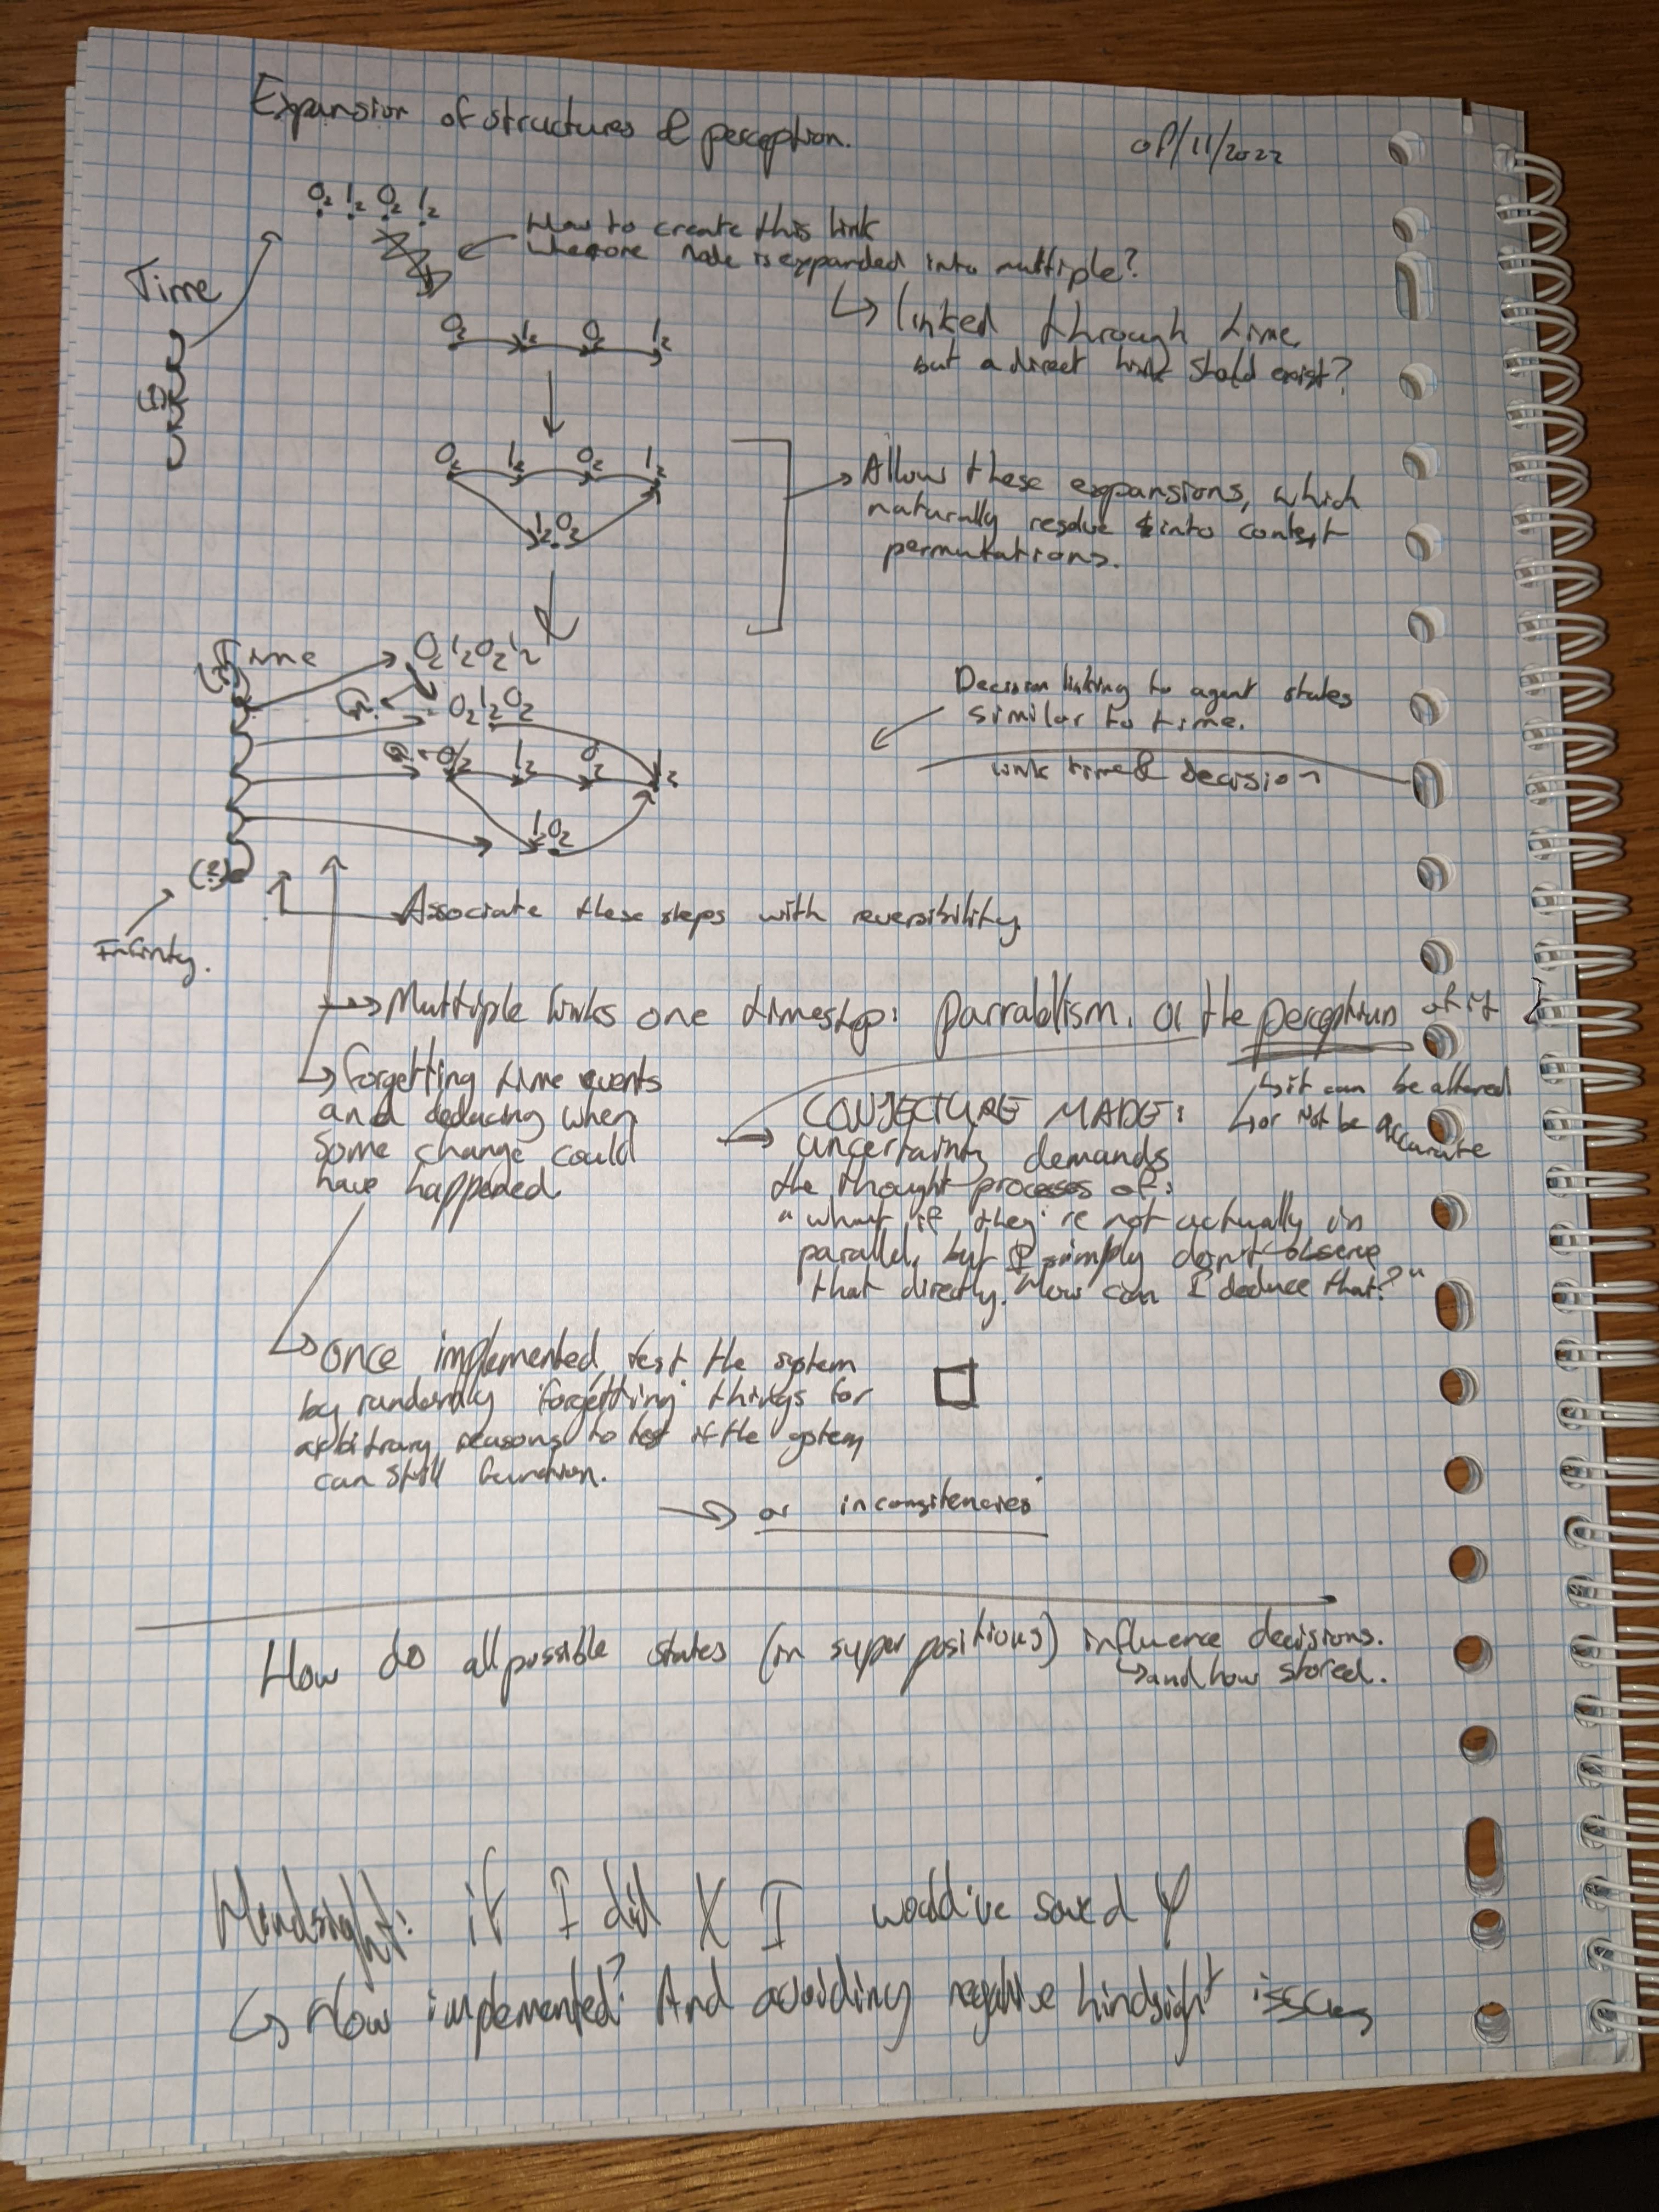 Expansion of structures & perception.
08/11/2022
0₂ 1₂ 0₂ 1₂
How to create this link
where one node is expanded into multiple?
Time
↳ linked through time,
but a direct link should exist?
0₂ 1₂ 0₂ 1₂
0₂ 1₂ 0₂ 1₂
1₂0₂
Allow these expansions, which
naturally resolve into context
permutations.
Time
0₂1₂0₂1₂
0₂1₂0₂
0₂ 1₂ 0₂ 1₂
1₂0₂
(?)
Decision linking to agent states
similar to time.
link time & decision
Infinity.
Associate these steps with reversibility.
Multiple links one timestep: parrallism. or the perception of it
↳ it can be altered
↳ or not be accurate
↳ forgetting time events
and deducing when
some change could
have happened.
CONJECTURE MADE:
uncertainty demands
the thought processes of:
"what if they're not actually in
parallel, but I simply don't observe
that directly. How can I deduce that?"
↳ once implemented, test the system
by randomly 'forgetting' things for
arbitrary reasons to test if the system
can still function.
→ or inconsitencies
How do all possible states (in superpositions) influence decisions.
↳ and how stored.
Hindsight: if I did X I would've saved Y
↳ How implemented? And avoiding negative hindsight issues